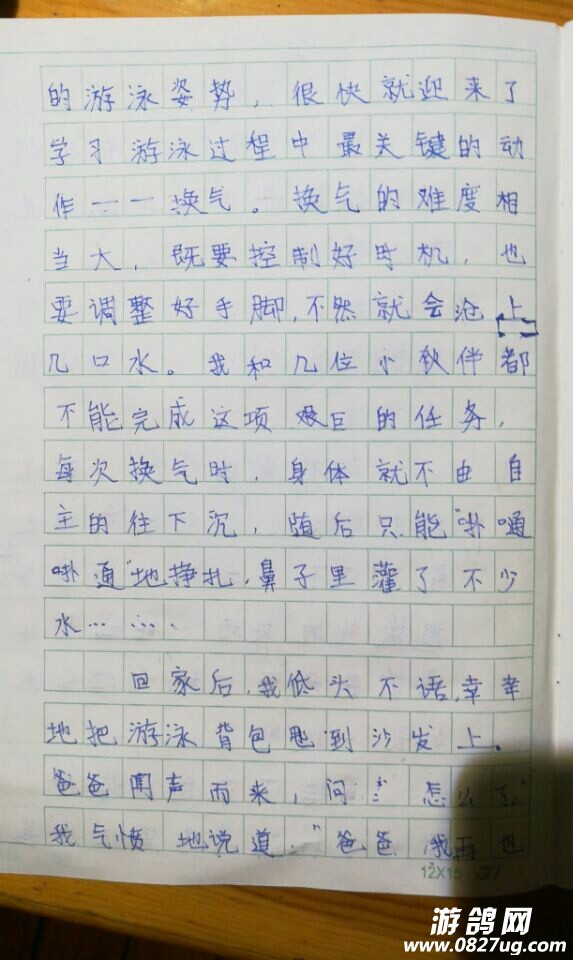 的游泳姿势，很快就迎来了
学习游泳过程中最关键的动
作——换气。换气的难度相
当大，既要控制好时机，也
要调整好手脚，不然就会沧上
几口水。我和几位小伙伴都
不能完成这项艰巨的任务，
每次换气时，身体就不由自
主的往下沉，随后只能"扑通
扑通"地挣扎，鼻子里灌了不少
水……
回家后，我低头不语，幸幸
地把游泳背包甩到沙发上。
爸爸闻声而来，问："怎么了？"
我气愤地说道："爸爸，我再也
12×15
游鸽网
www.0827ug.com